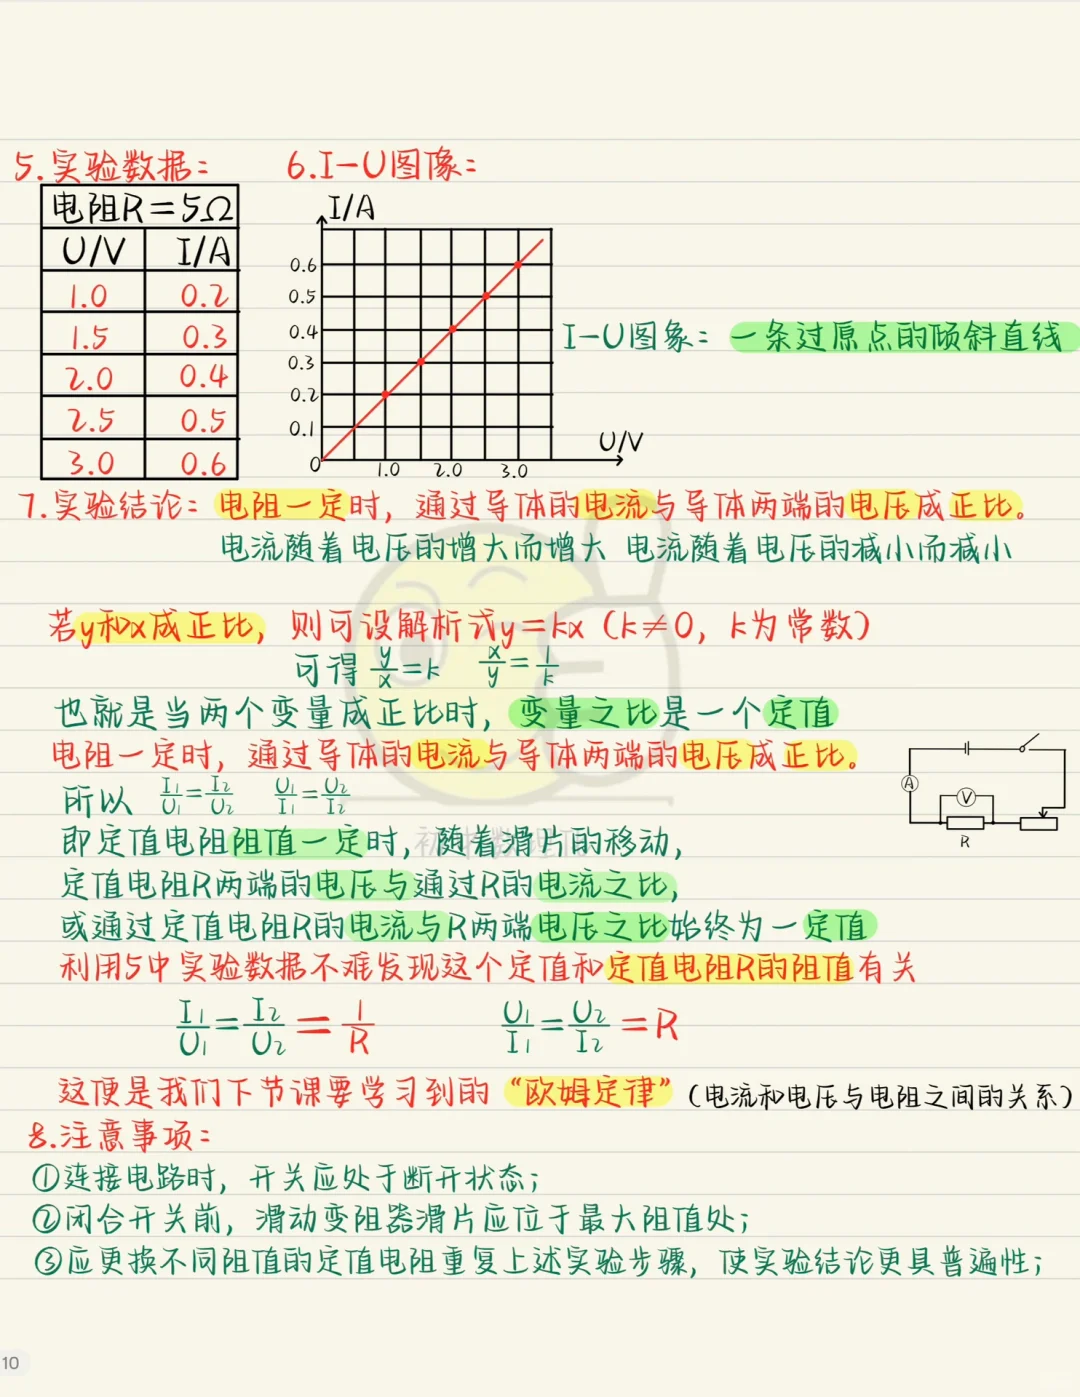 5.实验数据:
6.I-U图像:
电阻R=5Ω
U/V I/A
1.0 0.2
1.5 0.3
2.0 0.4
2.5 0.5
3.0 0.6
I/A
0.6
0.5
0.4
0.3
0.2
0.1
0 1.0 2.0 3.0
U/V
I-U图象: 一条过原点的倾斜直线
7.实验结论: 电阻一定时, 通过导体的电流与导体两端的电压成正比。
电流随着电压的增大而增大 电流随着电压的减小而减小
若y和x成正比, 则可设解析式y=kx (k≠0, k为常数)
可得 y/x=k x/y=1/k
也就是当两个变量成正比时, 变量之比是一个定值
电阻一定时, 通过导体的电流与导体两端的电压成正比。
所以 I₁/U₁=I₂/U₂ U₁/I₁=U₂/I₂
即定值电阻阻值一定时, 随着滑片的移动,
定值电阻R两端的电压与通过R的电流之比,
或通过定值电阻R的电流与R两端电压之比始终为一定值
A
V
R
利用5中实验数据不难发现这个定值和定值电阻R的阻值有关
I₁/U₁=I₂/U₂=1/R U₁/I₁=U₂/I₂=R
这便是我们下节课要学习到的“欧姆定律” (电流和电压与电阻之间的关系)
8.注意事项:
①连接电路时, 开关应处于断开状态;
②闭合开关前, 滑动变阻器滑片应位于最大阻值处;
③应更换不同阻值的定值电阻重复上述实验步骤, 使实验结论更具普遍性;
10